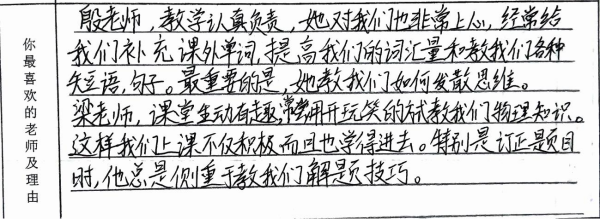 你最喜欢的老师及理由
殷老师，教学认真负责，她对我们也非常上心，经常给
我们补充课外单词，提高我们的词汇量和教我们各种
短语，句子。最重要的是，她教我们如何发散思维。
梁老师，课堂生动有趣，常常用开玩笑的方式教我们物理知识。
这样我们上课不仅积极而且也学得进去。特别是订正题目
时，他总是侧重于教我们解题技巧。